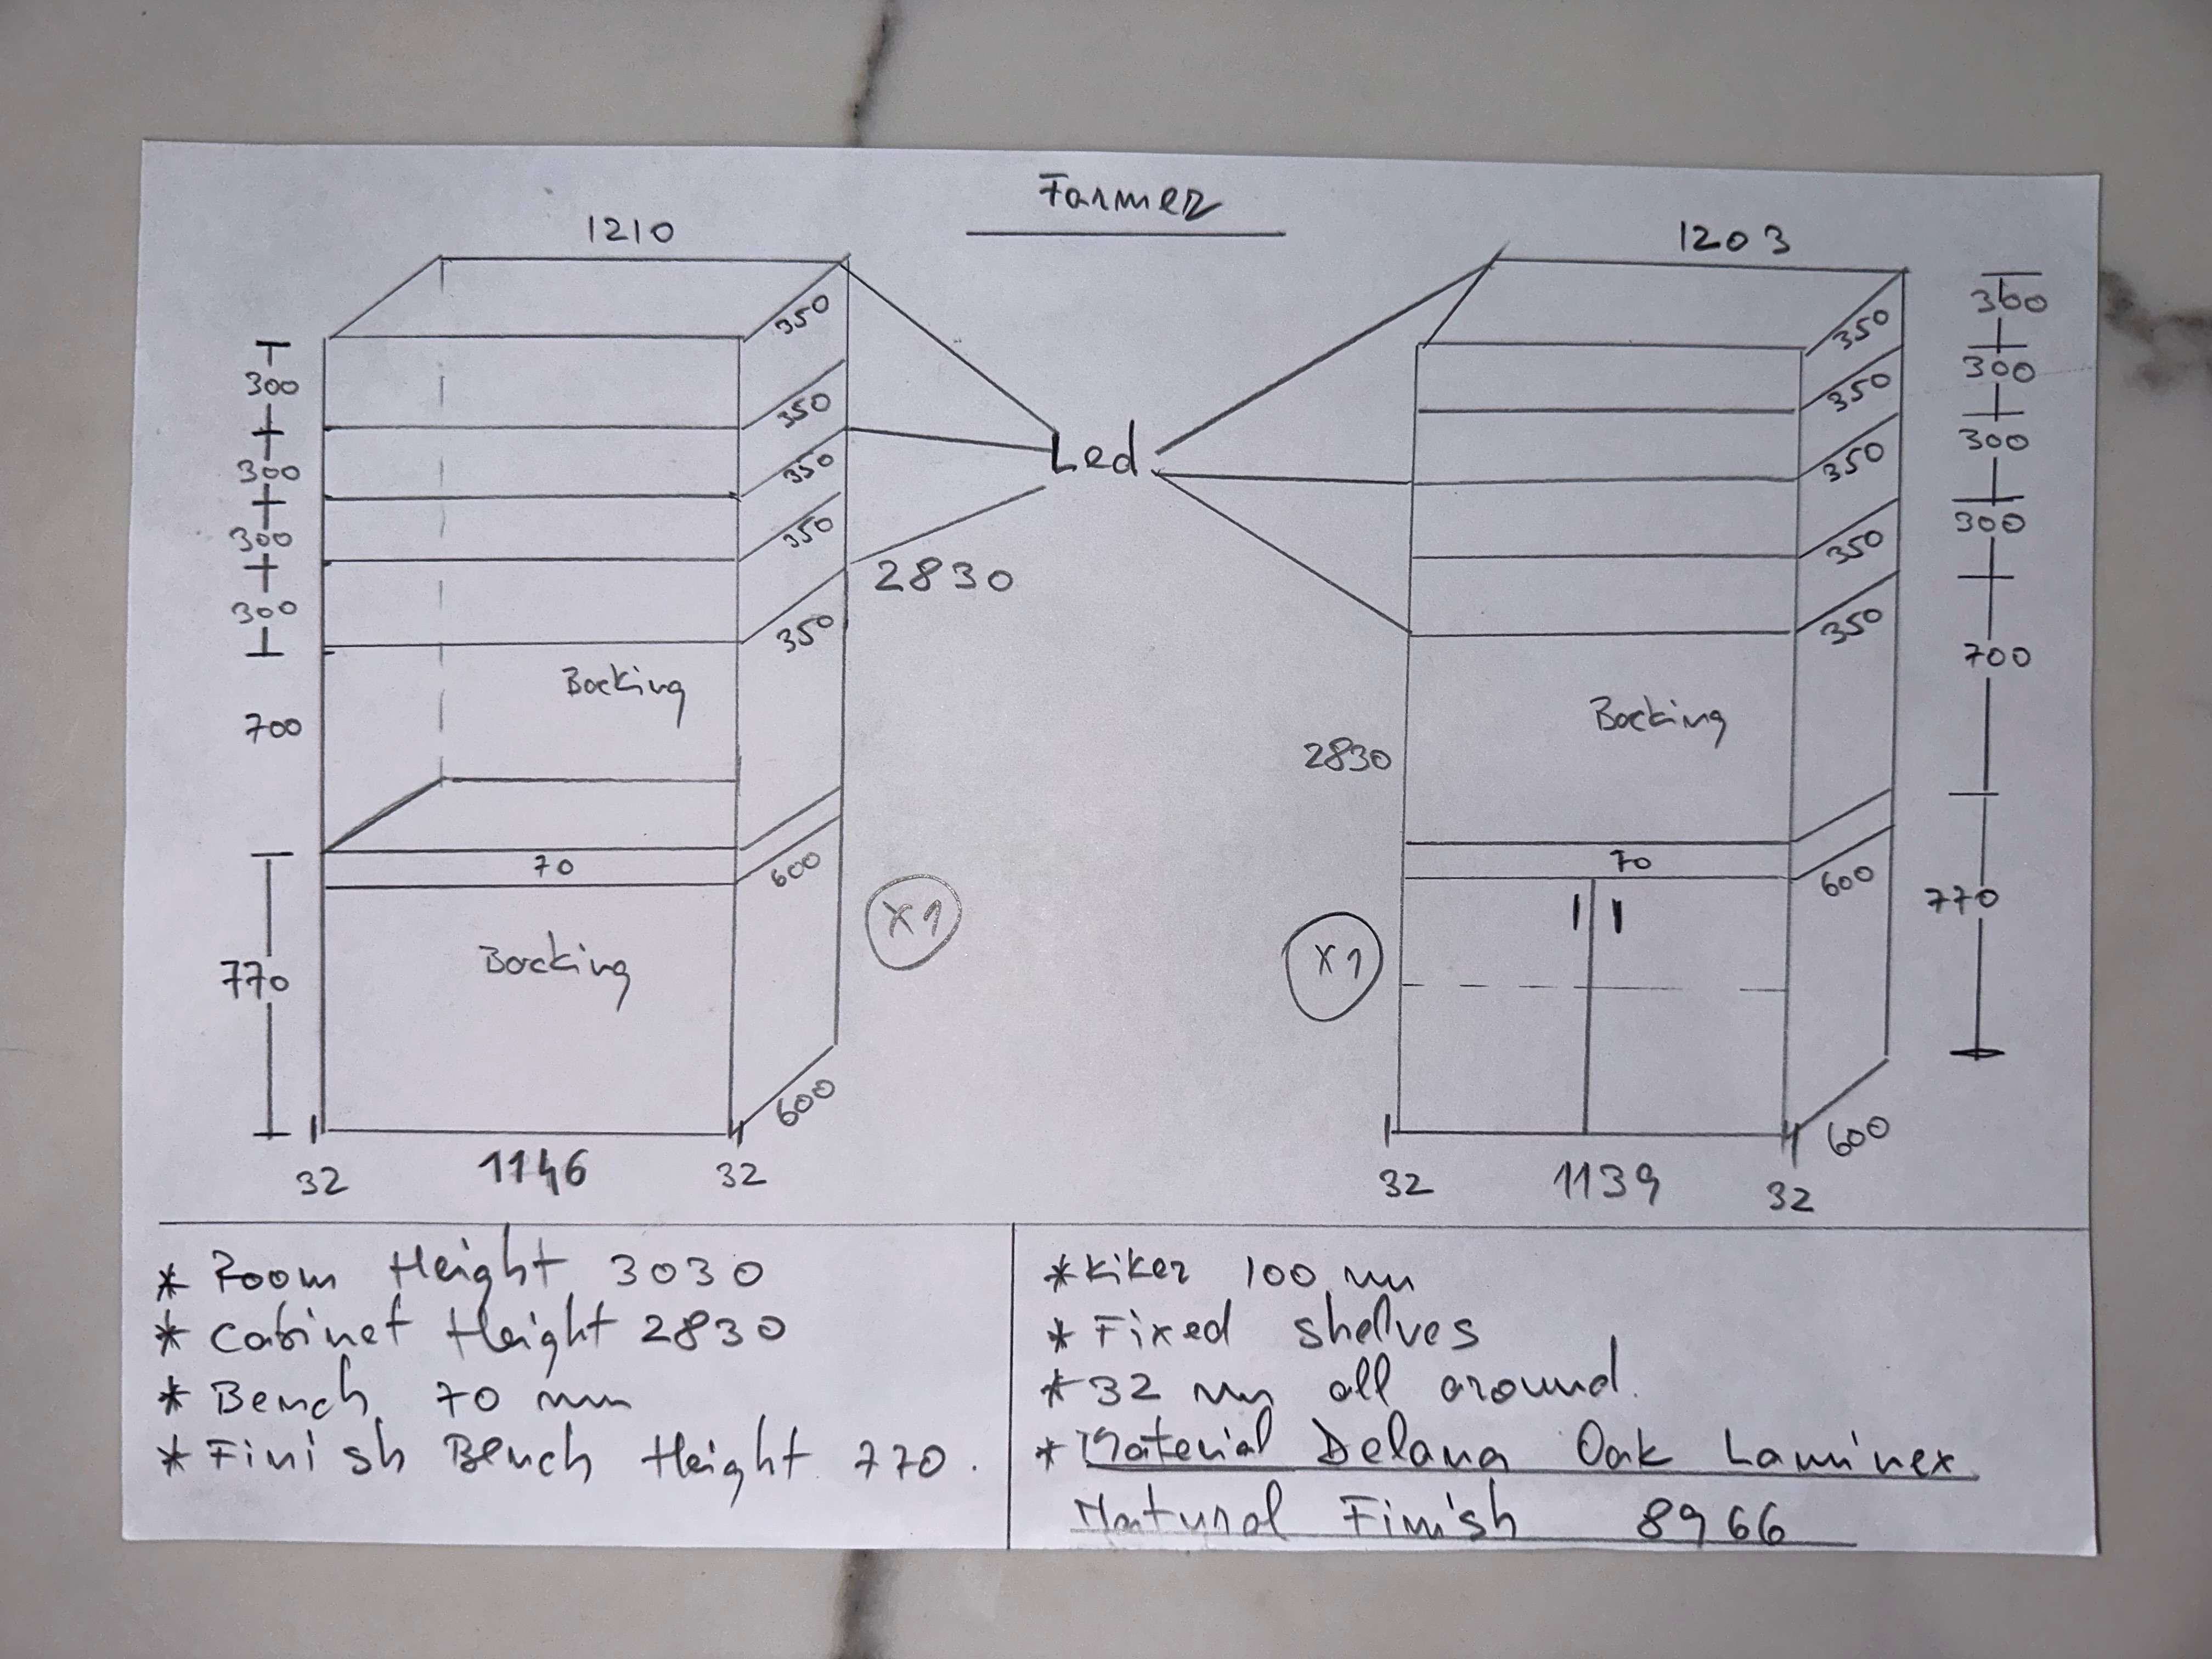 Farmer
1210
1203
350
350
350
350
350
300
300
300
300
700
770
Led
2830
Backing
70
600
Backing
X1
600
32
1146
32
350
350
350
350
350
300
300
300
300
700
770
2830
Backing
70
600
X1
600
32
1139
32
* Room Height 3030
* Cabinet Height 2830
* Bench 70 mm
* Finish Bench Height 770.
* Kiker 100 mm
* Fixed shelves
* 32 mm all around.
* Material Delana Oak Laminex
Natural Finish 8966